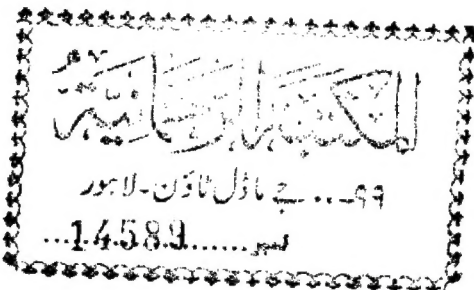 المكتبة الرحمانية
۹۹... جے ماڈل ٹاؤن۔ لاہور
نمبر......14589...